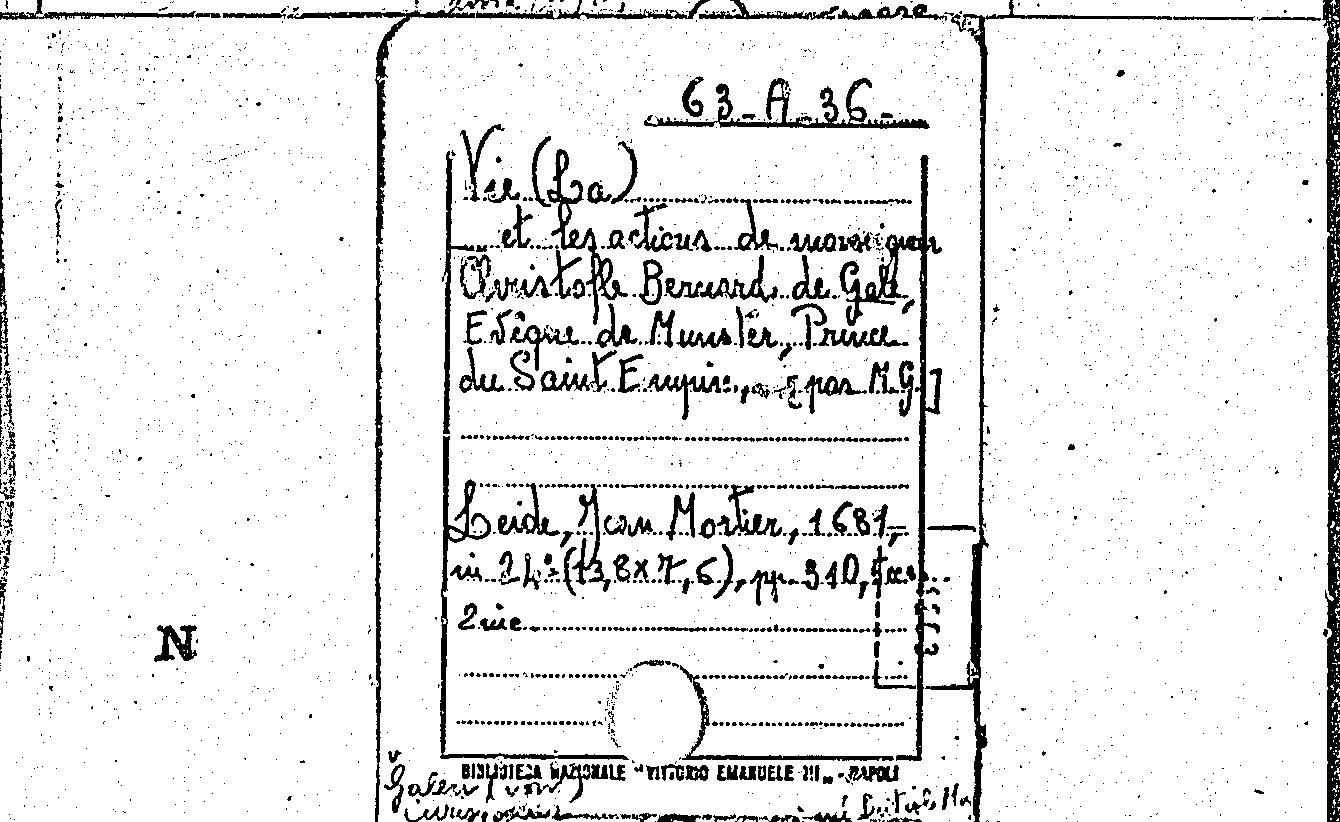 63-A-36-
Vie (La)
— et les actions de monseigneur
Christofle Bernard de Gale,
Evêque de Munster, Prince
du Saint Empire, [par M.G.]
Leide, Jean Mortier, 1681,
in 24º (13,8x7,6), pp. 310,
2 inc.
N
BIBLIOTECA NAZIONALE "VITTORIO EMANUELE III" - NAPOLI
Galen (von)